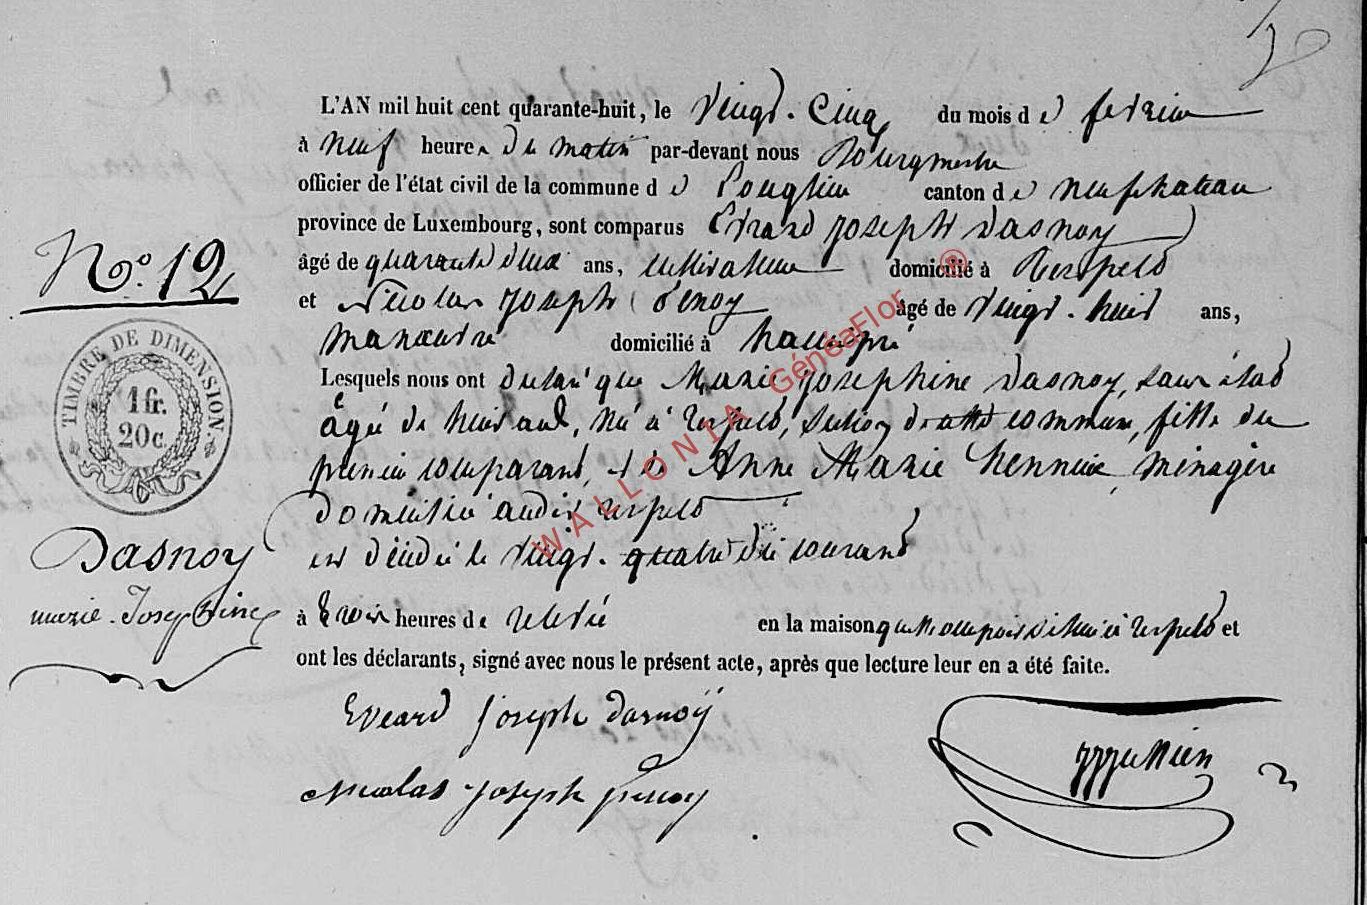 N.o 12
TIMBRE DE DIMENSION.
1 fr.
20 c.
Dasnoy
marie-Josephine
L'AN mil huit cent quarante-huit, le vingt-cinq du mois de fevrier
à neuf heures du matin par-devant nous Bourgmestre
officier de l'état civil de la commune de canton de neufchateau
province de Luxembourg, sont comparus Evrard joseph dasnoy
âgé de quarante deux ans, cultivateur domicilié à Respelt
et Nicolas joseph âgé de vingt-huit ans,
manœuvre domicilié à
Lesquels nous ont declaré que Marie josephine dasnoy, sans état
agée de huit ans, née à respelt, commune, fille du
premier comparant, et de Anne Marie ménagère
domiciliée audit respelt
est décédée le vingt-quatre du courant
à trois heures de relevée en la maison à respelt et
ont les déclarants, signé avec nous le présent acte, après que lecture leur en a été faite.
Evrard joseph dasnoÿ
Nicolas joseph
WALLONIA GénéaFlor ®